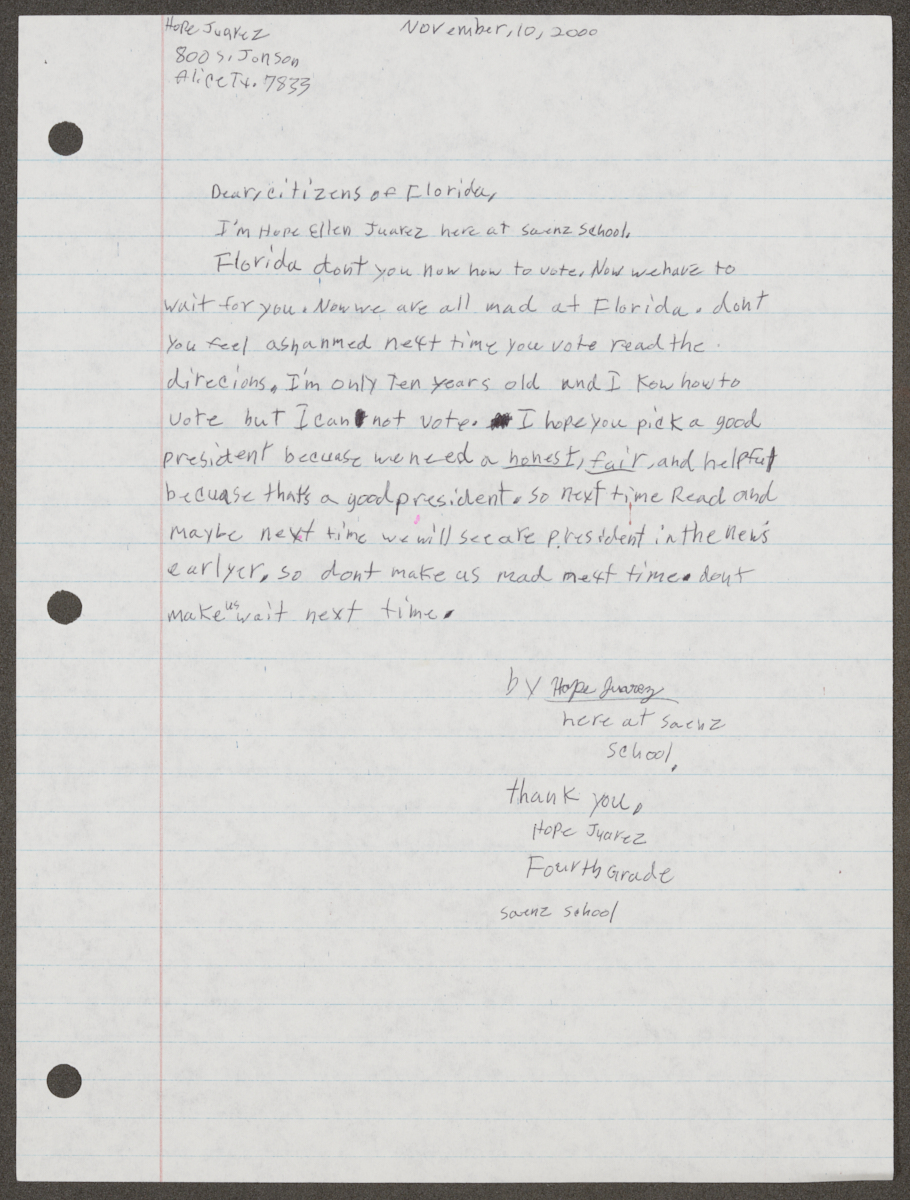 Hope Juarez
November, 10, 2000
800 S. Jonson
Alice Tx. 7833
Dear, citizens of Florida,
I'm Hope Ellen Juarez here at saenz school.
Florida dont you now how to vote. Now we have to
wait for you. Now we are all mad at Florida. dont
you feel ashanmed next time you vote read the
direcions. I'm only Ten years old and I Kow how to
vote but I can not vote. I hope you pick a good
president becuase we need a honest, fair, and helpful
becuase that's a good president. so next time Read and
maybe next time we will see are president in the new's
earlyer. so dont make us mad next time. dont
make us wait next time.
by Hope Juarez
here at saenz
school.
thank you,
Hope Juarez
Fourth Grade
saenz school